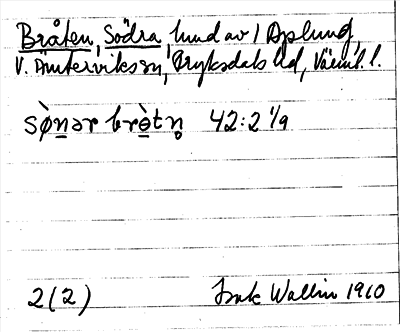 Bråten, Södra hmd av 1 Asplund,
V. Ämterviks sn, Fryksdals hd, Värml. l.
sø̀nər brètn̥ 42:2 1/9
2(2) Isak Wallin 1910